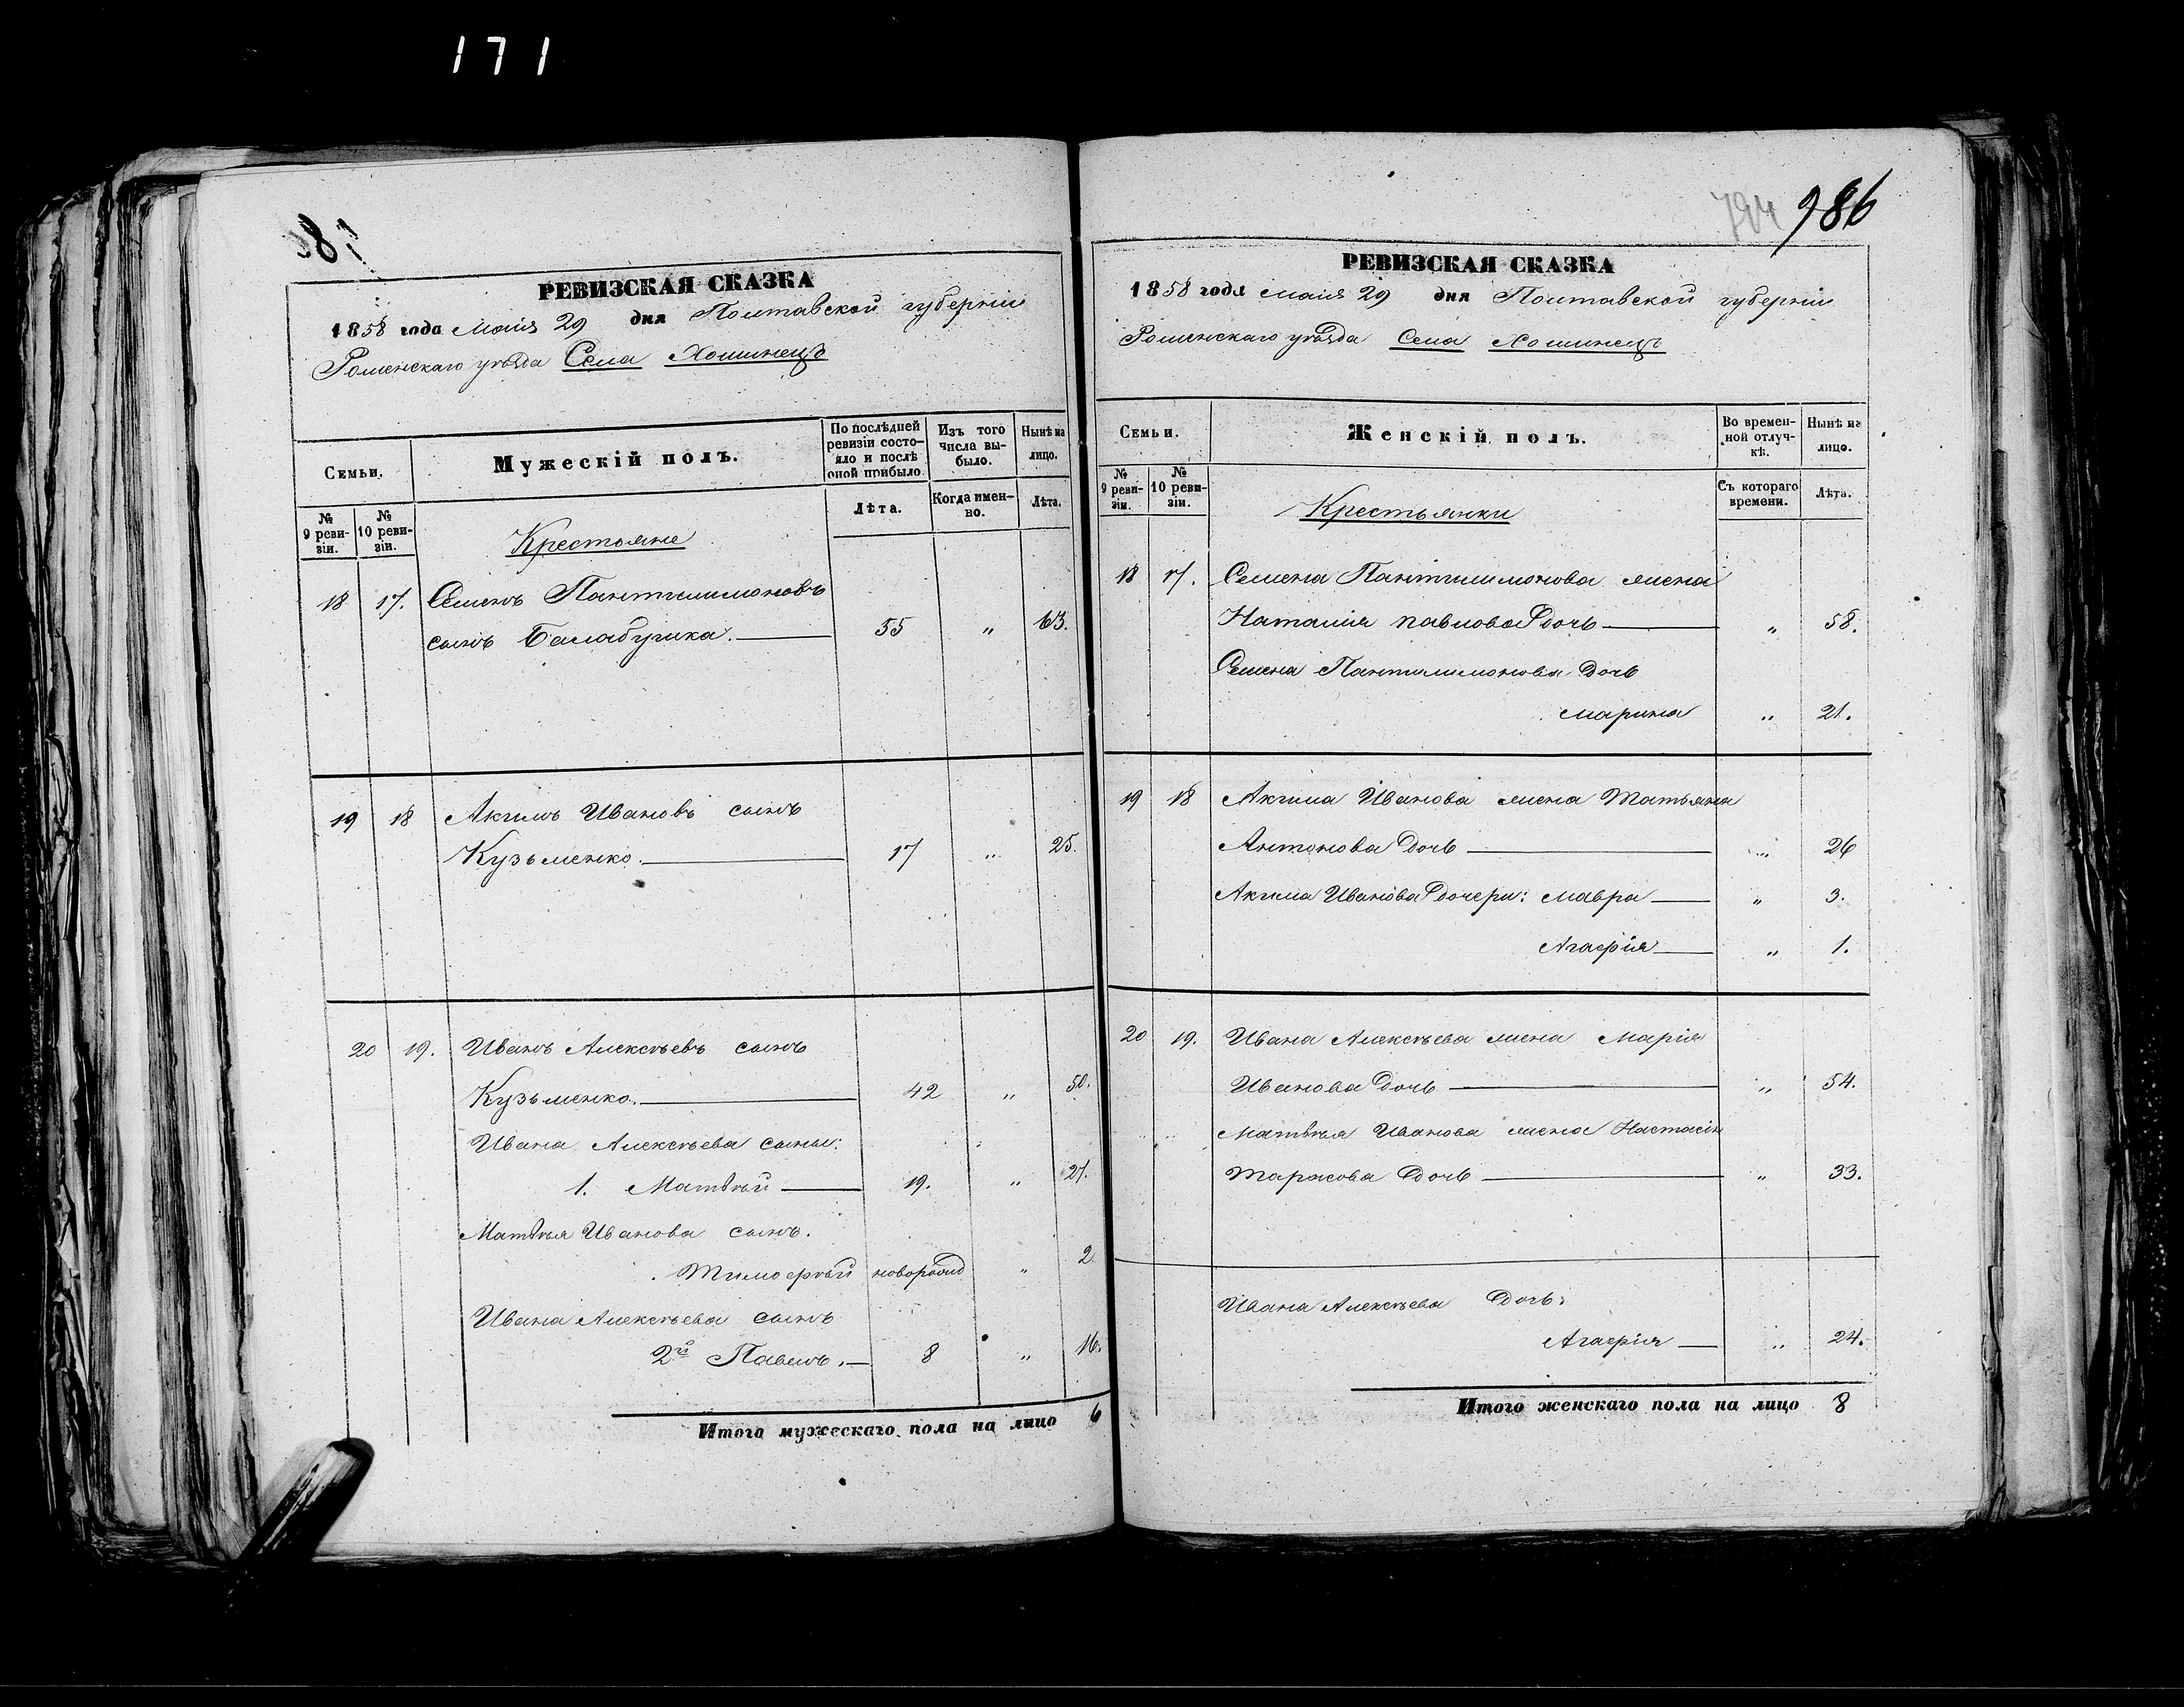 171
РЕВИЗСКАЯ СКАЗКА
1858 года Маія 29 дня Полтавской губерніи
Роменскаго уѣзда Села Хоминецъ
Семьи.
Мужескій полъ.
По послѣдней ревизіи состояло и послѣ оной прибыло
Изъ того числа выбыло.
Нынѣ на лицо.
№ 9 ревизіи.
№ 10 ревизіи.
Лѣта.
Когда именно.
Лѣта.
Крестьяне
18 17. Семенъ Пантилимоновъ
сынъ Балабушка. 55 " 63.
19 18 Акимъ Ивановъ сынъ
Кузьменко. 17 " 25.
20 19. Иванъ Алексѣевъ сынъ
Кузьменко. 42 " 50.
Ивана Алексѣева сыны:
1. Матвѣй 19. " 27.
Матвѣя Иванова сынъ.
Тимофѣй новорожд " 2
Ивана Алексѣева сынъ
2й Павелъ. 8 " 16.
Итого мужескаго пола на лицо 6
794 986
РЕВИЗСКАЯ СКАЗКА
1858 года Маія 29 дня Полтавской губерніи
Роменскаго уѣзда Села Хоминецъ
Семьи.
Женскій полъ.
Во временной отлучкѣ.
Нынѣ на лицо.
№ 9 ревизіи.
№ 10 ревизіи.
Съ котораго времени.
Лѣта.
Крестьянки
18 17. Семена Пантилимонова жена
Наталія Павлова дочь " 58.
Семена Пантилимонова дочь
Марина " 21.
19 18 Акима Иванова жена Татьяна
Антонова дочь " 26
Акима Иванова дочери: Мавра " 3.
Агафія " 1.
20 19. Ивана Алексѣева жена Марія
Иванова дочь " 54.
Матвѣя Иванова жена Настасія
Тарасова дочь " 33.
Ивана Алексѣева дочь:
Агафія " 24.
Итого женскаго пола на лицо 8